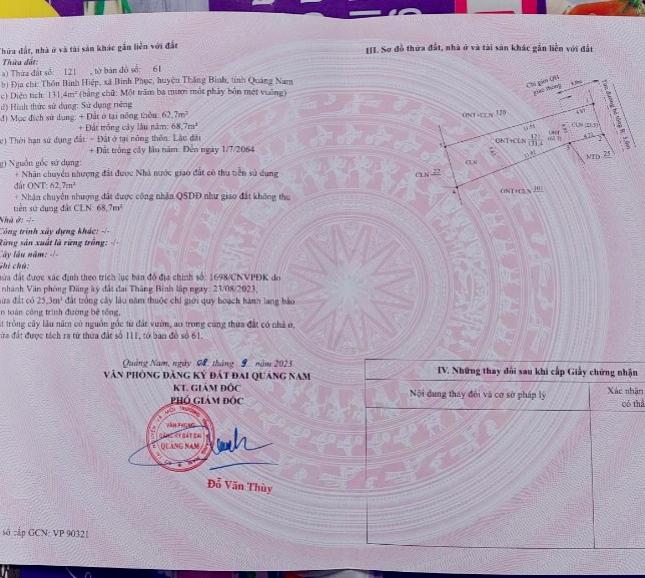 Thửa đất, nhà ở và tài sản khác gắn liền với đất
Thửa đất:
a) Thửa đất số: 121 , tờ bản đồ số: 61
b) Địa chỉ: Thôn Bình Hiệp, xã Bình Phục, huyện Thăng Bình, tỉnh Quảng Nam
c) Diện tích: 131,4m² (bằng chữ: Một trăm ba mươi mốt phẩy bốn mét vuông)
d) Hình thức sử dụng: Sử dụng riêng
đ) Mục đích sử dụng: + Đất ở tại nông thôn: 62,7m²
+ Đất trồng cây lâu năm: 68,7m²
e) Thời hạn sử dụng đất: + Đất ở tại nông thôn: Lâu dài
+ Đất trồng cây lâu năm: Đến ngày 1/7/2064
g) Nguồn gốc sử dụng:
+ Nhận chuyển nhượng đất được Nhà nước giao đất có thu tiền sử dụng
đất ONT: 62,7m²
+ Nhận chuyển nhượng đất được công nhận QSDĐ như giao đất không thu
tiền sử dụng đất CLN: 68,7m²
Nhà ở: -/-
Công trình xây dựng khác: -/-
Rừng sản xuất là rừng trồng: -/-
Cây lâu năm: -/-
Ghi chú:
đất được xác định theo trích lục bản đồ địa chính số: 1698/CNVPĐK do
nhánh Văn phòng Đăng ký đất đai Thăng Bình lập ngày: 21/08/2023.
đất có 25,3m² đất trồng cây lâu năm thuộc chỉ giới quy hoạch hành lang bảo
toàn công trình đường bê tông.
trồng cây lâu năm có nguồn gốc từ đất vườn, ao trong cùng thửa đất có nhà ở.
đất được tách ra từ thửa đất số 111, tờ bản đồ số 61.
Quảng Nam, ngày 08 tháng 9 năm 2023
VĂN PHÒNG ĐĂNG KÝ ĐẤT ĐAI QUẢNG NAM
KT. GIÁM ĐỐC
PHÓ GIÁM ĐỐC
VĂN PHÒNG
ĐĂNG KÝ ĐẤT ĐAI
QUẢNG NAM
Đỗ Văn Thùy
số cấp GCN: VP 90321
III. Sơ đồ thửa đất, nhà ở và tài sản khác gắn liền với đất
Chỉ giới QH
giao thông
ONT+CLN 120
ONT+CLN 121 131,4
CLN
CLN 22
ONT+CLN
NTD 25
IV. Những thay đổi sau khi cấp Giấy chứng nhận
Nội dung thay đổi và cơ sở pháp lý
Xác nhận
có thẩ